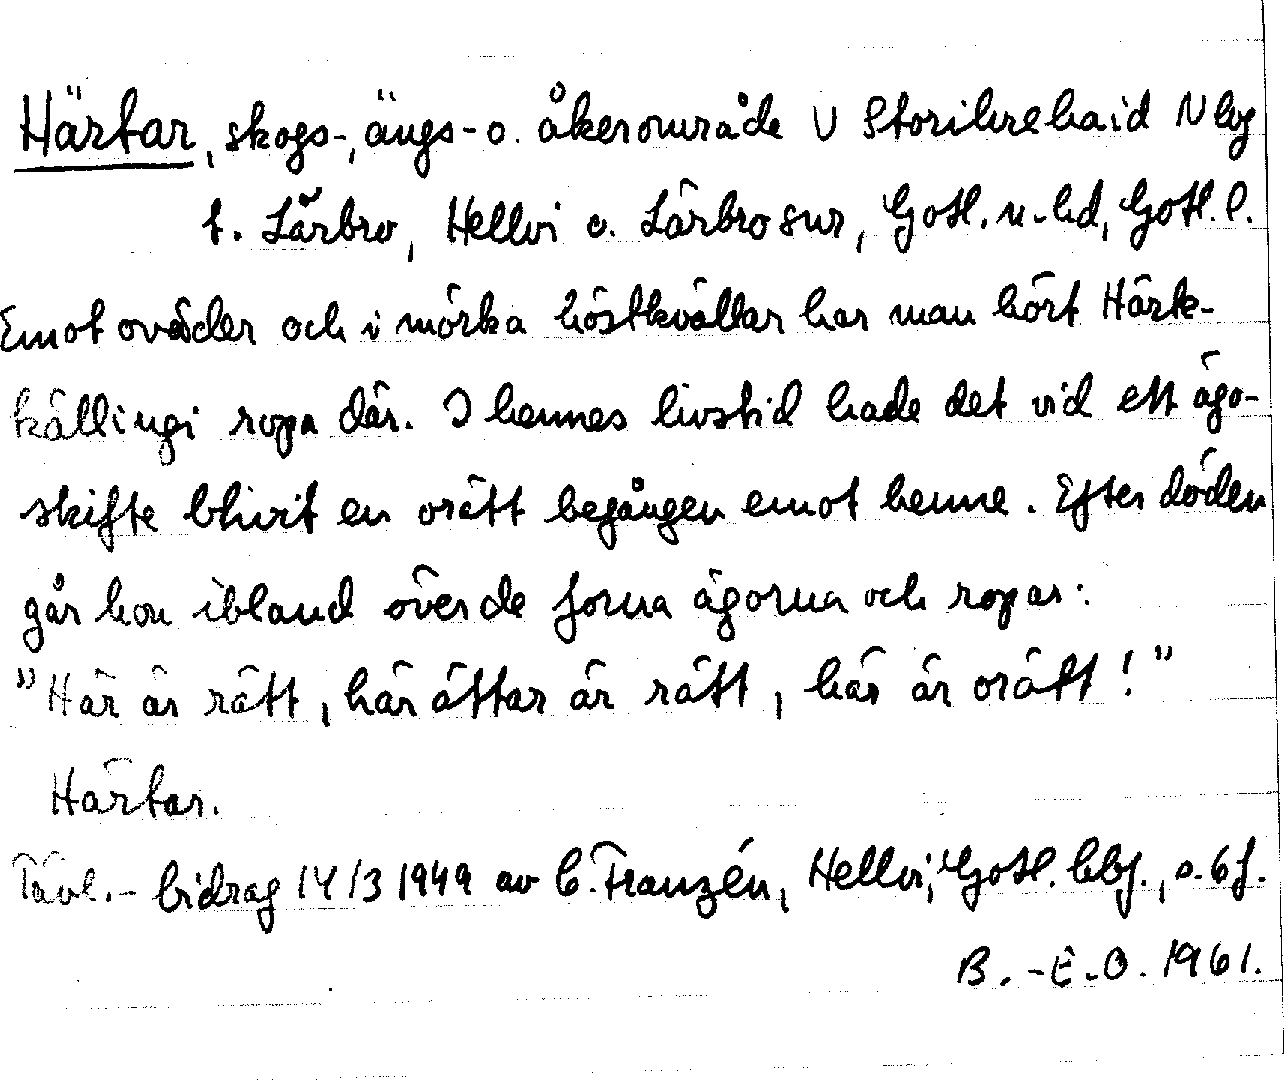 Härtar, skogs-, ängs- o. åkerområde V Storihrehaid N lbg
t. Lärbro, Hellvi o. Lärbro snr, Gotl. n. hd, Gotl. l.
Emot oväder och i mörka höstkvällar har man hört Härt-
källingi ropa där. I hennes livstid hade det vid ett ägo-
skifte blivit en orätt begången emot henne. Efter döden
går hon ibland över de forna ägorna och ropar:
"Här är rätt, härättar är rätt, här är orätt!"
Härtar.
Tävl.- bidrag 14/3 1949 av C. Franzén, Hellvi, Gotl. hbf., s. 6 f.
B.-E. O. 1961.